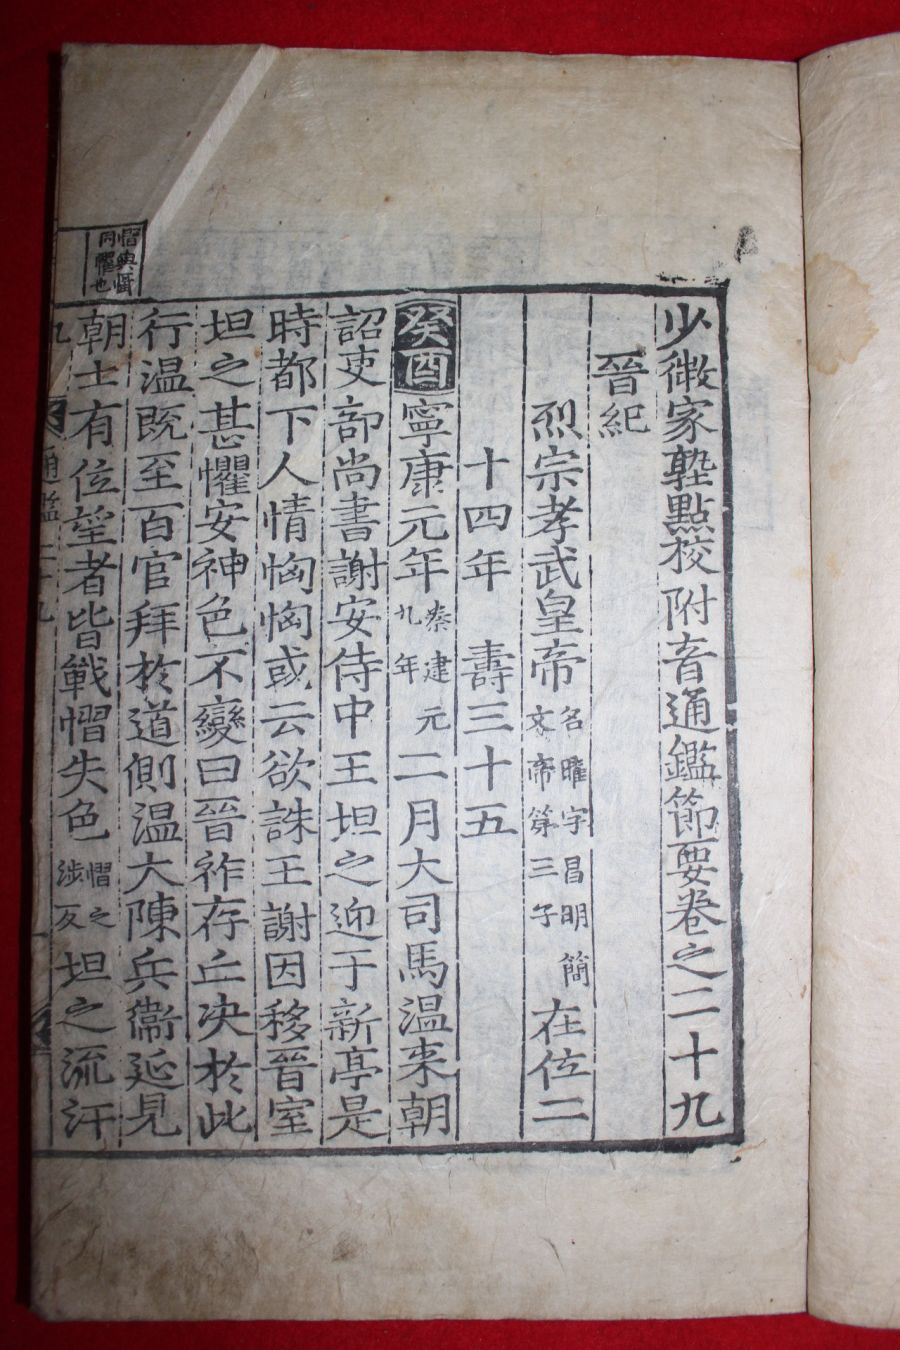 少微家塾點校附音通鑑節要卷之二十九
晉紀
烈宗孝武皇帝名曜字昌明簡文帝第三子在位二
十四年 壽三十五
癸酉寧康元年秦建元九年二月大司馬温来朝
詔吏部尚書謝安侍中王坦之迎于新亭是
時都下人情恟恟或云欲誅王謝因移晉室
坦之甚懼安神色不變曰晉祚存亡决於此
行温既至百官拜於道側温大陳兵衛延見
朝士有位望者皆戰慴失色慴之涉反坦之流汗
慴與慴同懼也
通鑑二十九
九